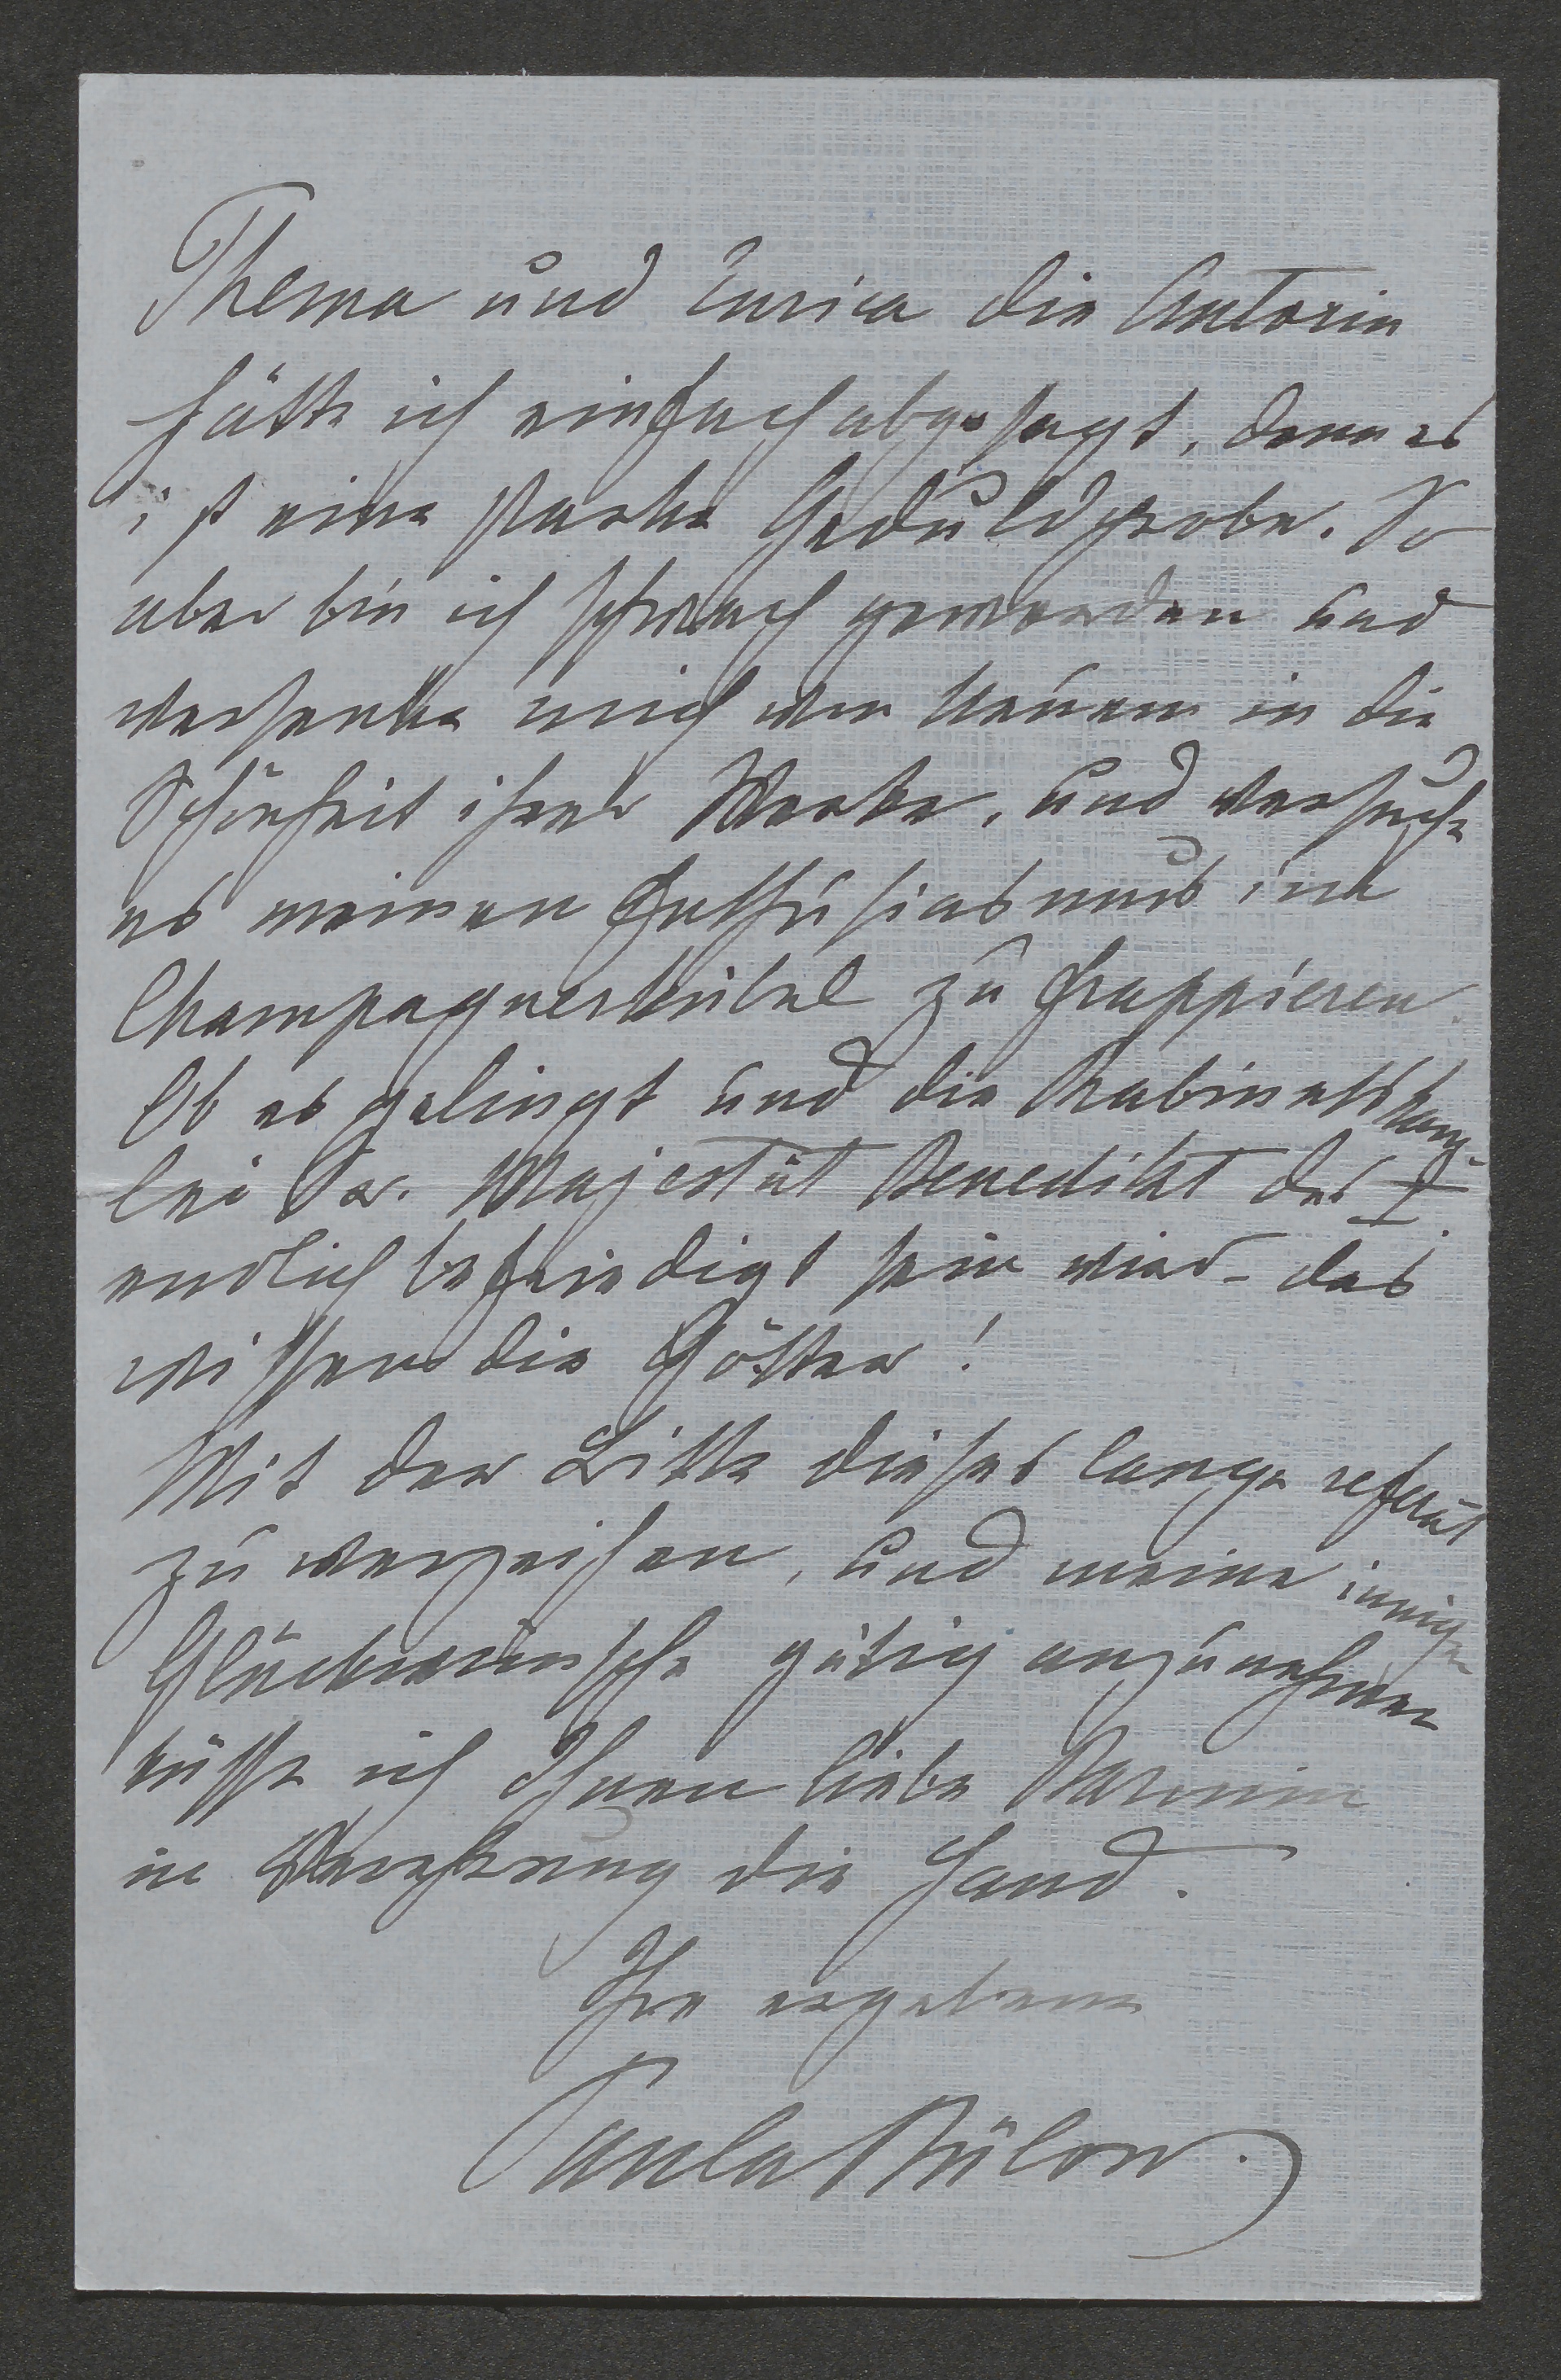 Thema und Enrica die Autorin
hätte ich einfach abgesagt, denn es
ist eine starke Geduldprobe. So
aber bin ich schwach geworden und
versenke mich von Neuem in die
Schönheit ihrer Werke, und versuche
es meinen Enthusiasmus im
Champagnerkübel zu frappieren.
Ob es gelingt und die Kabinettskanz-
lei Sr. Majestät Benedikt des I.
endlich befriedigt sein wird - das
wissen die Götter!
Mit der Bitte dieses lange referat
zu verzeihen, und meine innigen
Glückwünsche gütig anzunehmen
küsse ich Ihnen liebe Baronin
in Verehrung die Hand.
Ihre ergebene
Paula Bülow.